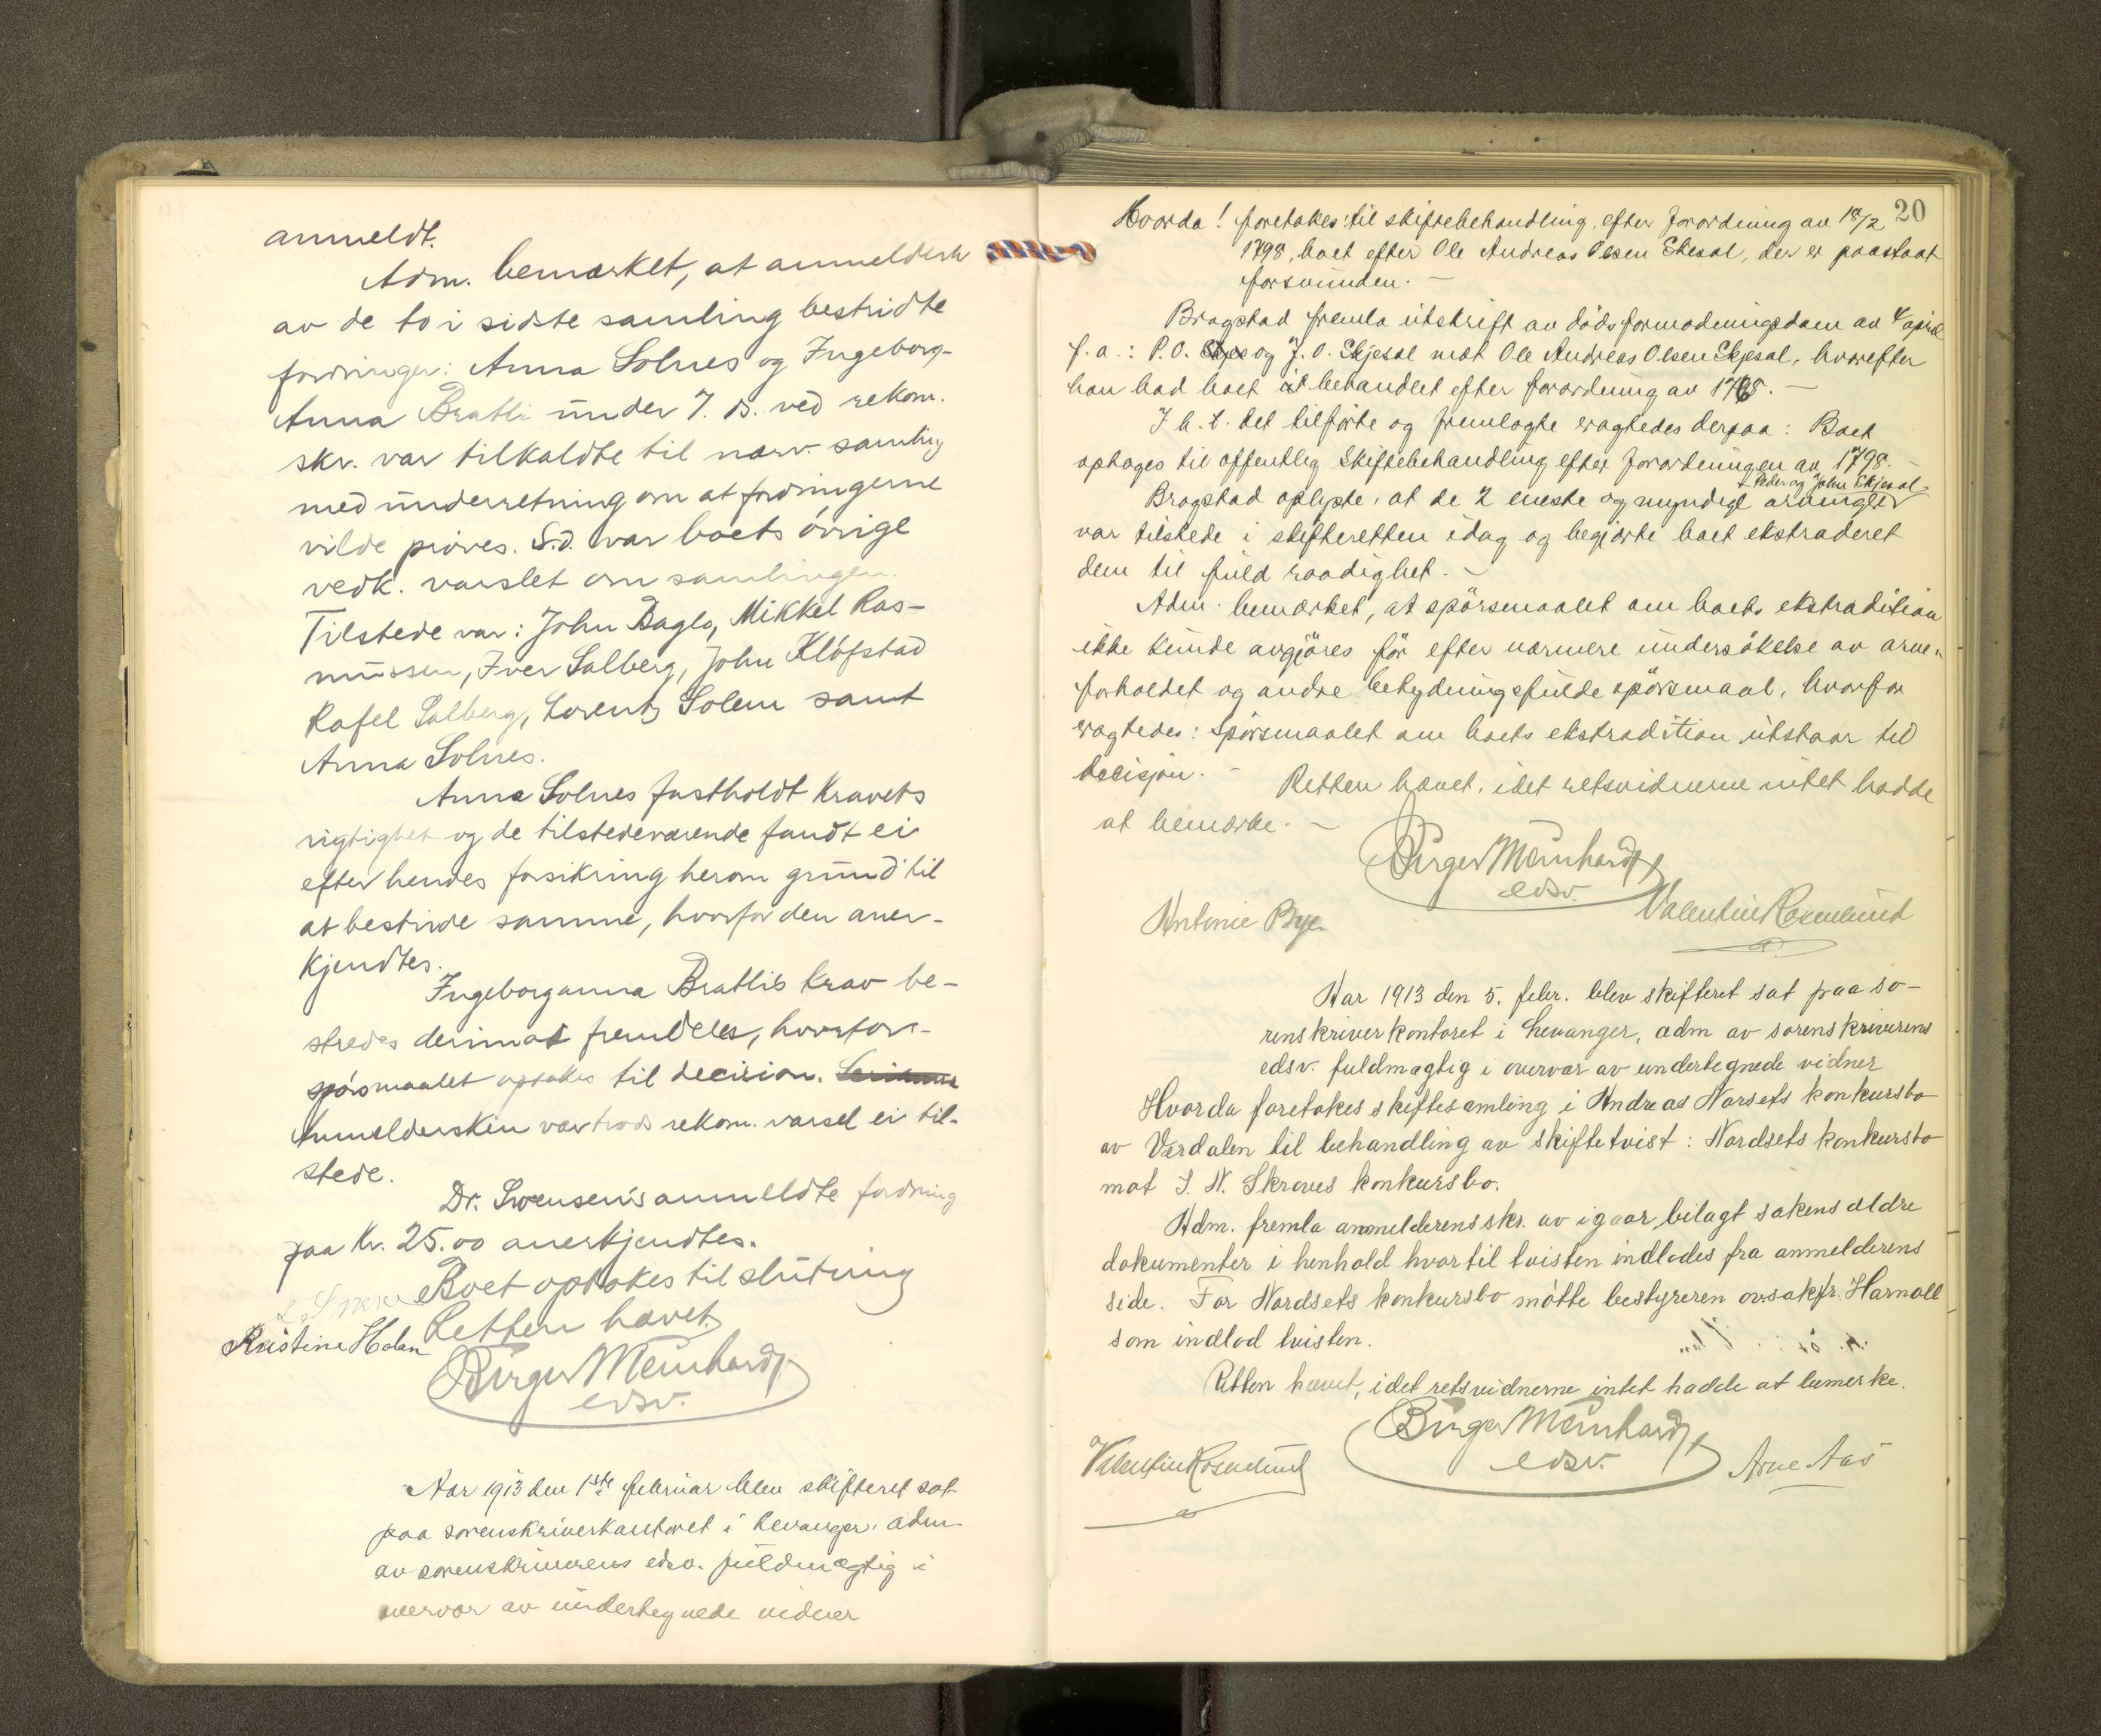 anmeldt.
Adm. bemærket, at anmelderne
av de to i sidste samling bestridte
fordringer: Anna Solnes og Ingeborg-
Anna Bratli under 7. ds. ved rekom.
skr. var tilkaldte til nærv. samling
med underretning om at fordringerne
vilde prøves. S.d. var boets øvrige
vedk. varslet om samlingen.
Tilstede var: John Baglo, Mikkel Ras-
mussen, Iver Salberg, John Kløfstad
Rafel Salberg, Lorents Solem samt
Anna Solnes.
Anna Solnes fastholdt kravets
rigtighet og de tilstedeværende fandt ei
efter hendes forsikring herom grund til
at bestride samme, hvorfor den aner-
kjendtes.
Ingeborganna Bratlis krav be-
stredes derimot fremdeles, hvorfor
spørsmaalet optokes til decision.
Anmeldersken var trods rekom. varsel ei til-
stede.
Dr. Svensen's anmeldte fordring
paa Kr. 25.00 anerkjendtes.
Boet optokes til slutning
Retten hævet.
Kristine Holan
Birger Meinhardt
edsv.
Aar 1913 den 1ste februar blev skifteret sat
paa sorenskriverkontoret i Levanger, adm
av sorenskriverens edsv. fuldmægtig i
overvær av undertegnede vidner
20
Hvorda! foretokes til skiftebehandling efter forordning av 18/2
1798, boet efter Ole Andreas Olsen Ekesal, der er paastaat
forsvunden. —
Bragstad fremla utskrift av dødsformodningsdom av 4 april
f.a.: P.O. og J.O. Skjesol mot Ole Andreas Olsen Skjesol, hvorefter
han bad boet behandlet efter forordning av 1798. —
I h. t. det tilførte og fremlagte eragtedes derpaa: Boet
optages til offentlig skiftebehandling efter forordningen av 1798. —
+ Peder og John Skjesol
Bragstad oplyste, at de 2 eneste og myndige arvinger
var tilstede i skifteretten idag og begjærte boet ekstraderet
dem til fuld raadighet. —
Adm. bemærket, at spørsmaalet om boets ekstradition
ikke kunde avgjøres før efter nærmere undersøkelse av arve-
forholdet og andre betydningsfulde spørsmaal, hvorfor
eragtedes: Spørsmaalet om boets ekstradition utstaar til
decisjon. — Retten hævet, idet retsvidnerne intet hadde
at bemærke. —
Birger Meinhardt
edsv.
Antonie Bye.
Valentin Rosenlund
Aar 1913 den 5. febr. blev skifteret sat paa so-
renskriverkontoret i Levanger, adm av sorenskriverens
edsv. fuldmægtig i overvær av undertegnede vidner
Hvorda foretokes skiftesamling i Andreas Norsets konkursbo
av Værdalen til behandling av skiftetvist: Nordsets konkursbo
mot J. N. Skroves konkursbo.
Adm. fremla anmelderens skr. av igaar, bilagt sakens ældre
dokumenter i henhold hvortil tvisten indlodes fra anmelderens
side. For Nordsets konkursbo møtte bestyreren ov.sakfr. Harnoll
som indlod tvisten.
Retten hævet, idet retsvidnerne intet hadde at bemerke.
Birger Meinhardt
edsv.
Valentin Rosenlund
Arne Aas